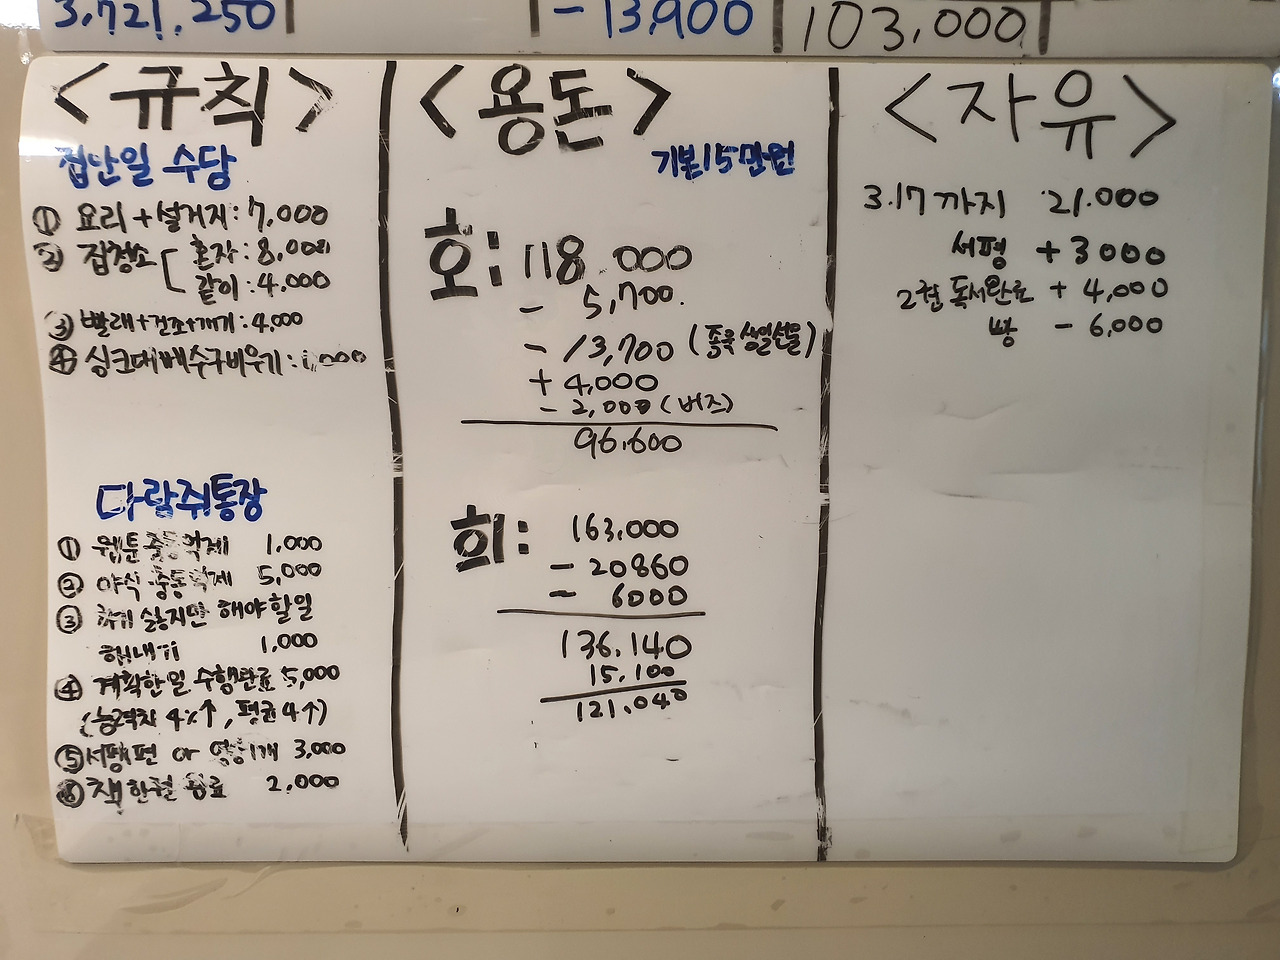 3,721,250 -13,900 103,000
<규칙>
집안일 수당
① 요리+설거지: 7,000
② 집청소 혼자: 8,000
같이: 4,000
③ 빨래+건조+개기: 4,000
④ 싱크대배수구비우기: 1,000
다람쥐통장
① 웹툰 충동억제 1,000
② 야식 충동억제 5,000
③ 하기 싫지만 해야할일
해내기 1,000
④ 계획한일 수행완료 5,000
4%↑, 평균4↑)
⑤ 서평1편 or 1개 3,000
⑥ 책한권 완료 2,000
<용돈>
기본15만원
호: 118.000
- 5,700.
- 13,700 (종욱 생일선물)
+ 4,000
- 2,000 (버즈)
96.600
희: 163.000
- 20860
- 6000
136.140
15.100
121.040
<자유>
3.17까지 21.000
서평 +3000
2권 독서완료 + 4,000
빵 - 6,000